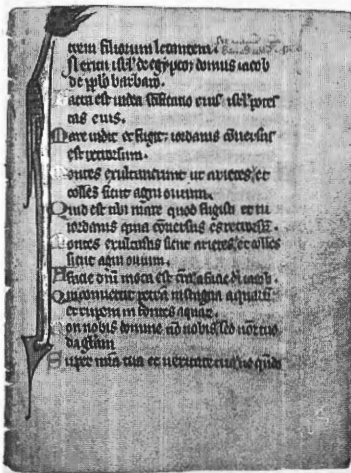 trem filiorum letantem.
N exitu isrl' de egypto: domus iacob
de pplo barbaro.
Facta est iudea scificatio eius isrl' potes
tas eius.
Mare uidit et fugit: iordanis conuersus
est retrorsum.
Montes exultauerunt ut arietes: et
colles sicut agni ouium.
Quid est tibi mare quod fugisti et tu
iordanis quia conuersus es retrorsum.
Montes exultastis sicut arietes: et colles
sicut agni ouium.
A facie dni mota est tra: a facie di iacob.
Qui conuertit petram in stagna aquarum
et rupem in fontes aquarum.
Non nobis domine non nobis: sed noi tuo
da gliam
Super mia tua et ueritate tua: ne quando